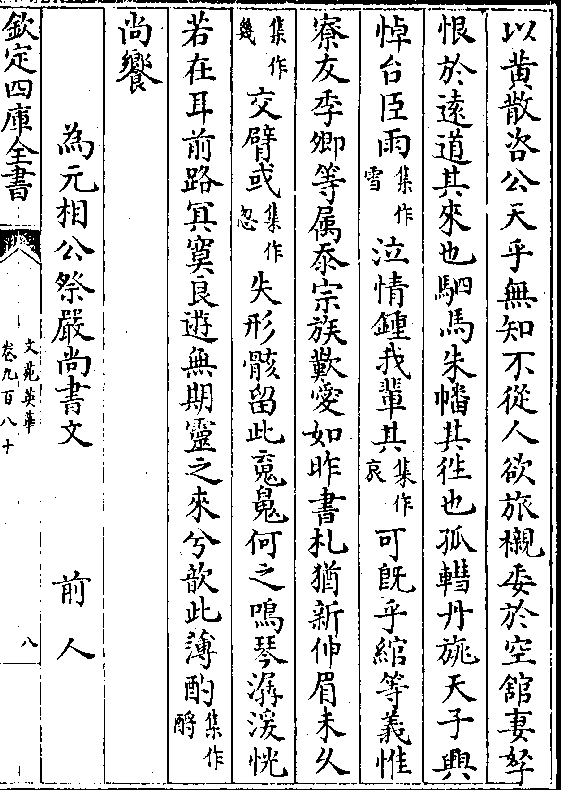 以黄散咨公天乎無知不從人欲旅櫬委於空舘妻孥
恨於遠道其來也駟馬朱幡其徃也孤轊丹旐天子興
悼台臣雨集作雪泣情鍾我輩其集作哀可既乎綰等義惟
寮友季卿等属忝宗族歡愛如昨書札猶新伸眉未久
集作幾交臂或集作忽失形骸留此䰟鬼何之鳴琴潺湲恍
若在耳前路冥寞良遊無期靈之來兮歆此薄酌集作酹
尚饗
為元相公祭嚴尚書文 前人
欽定四庫全書
文苑英華
卷九百八十
八